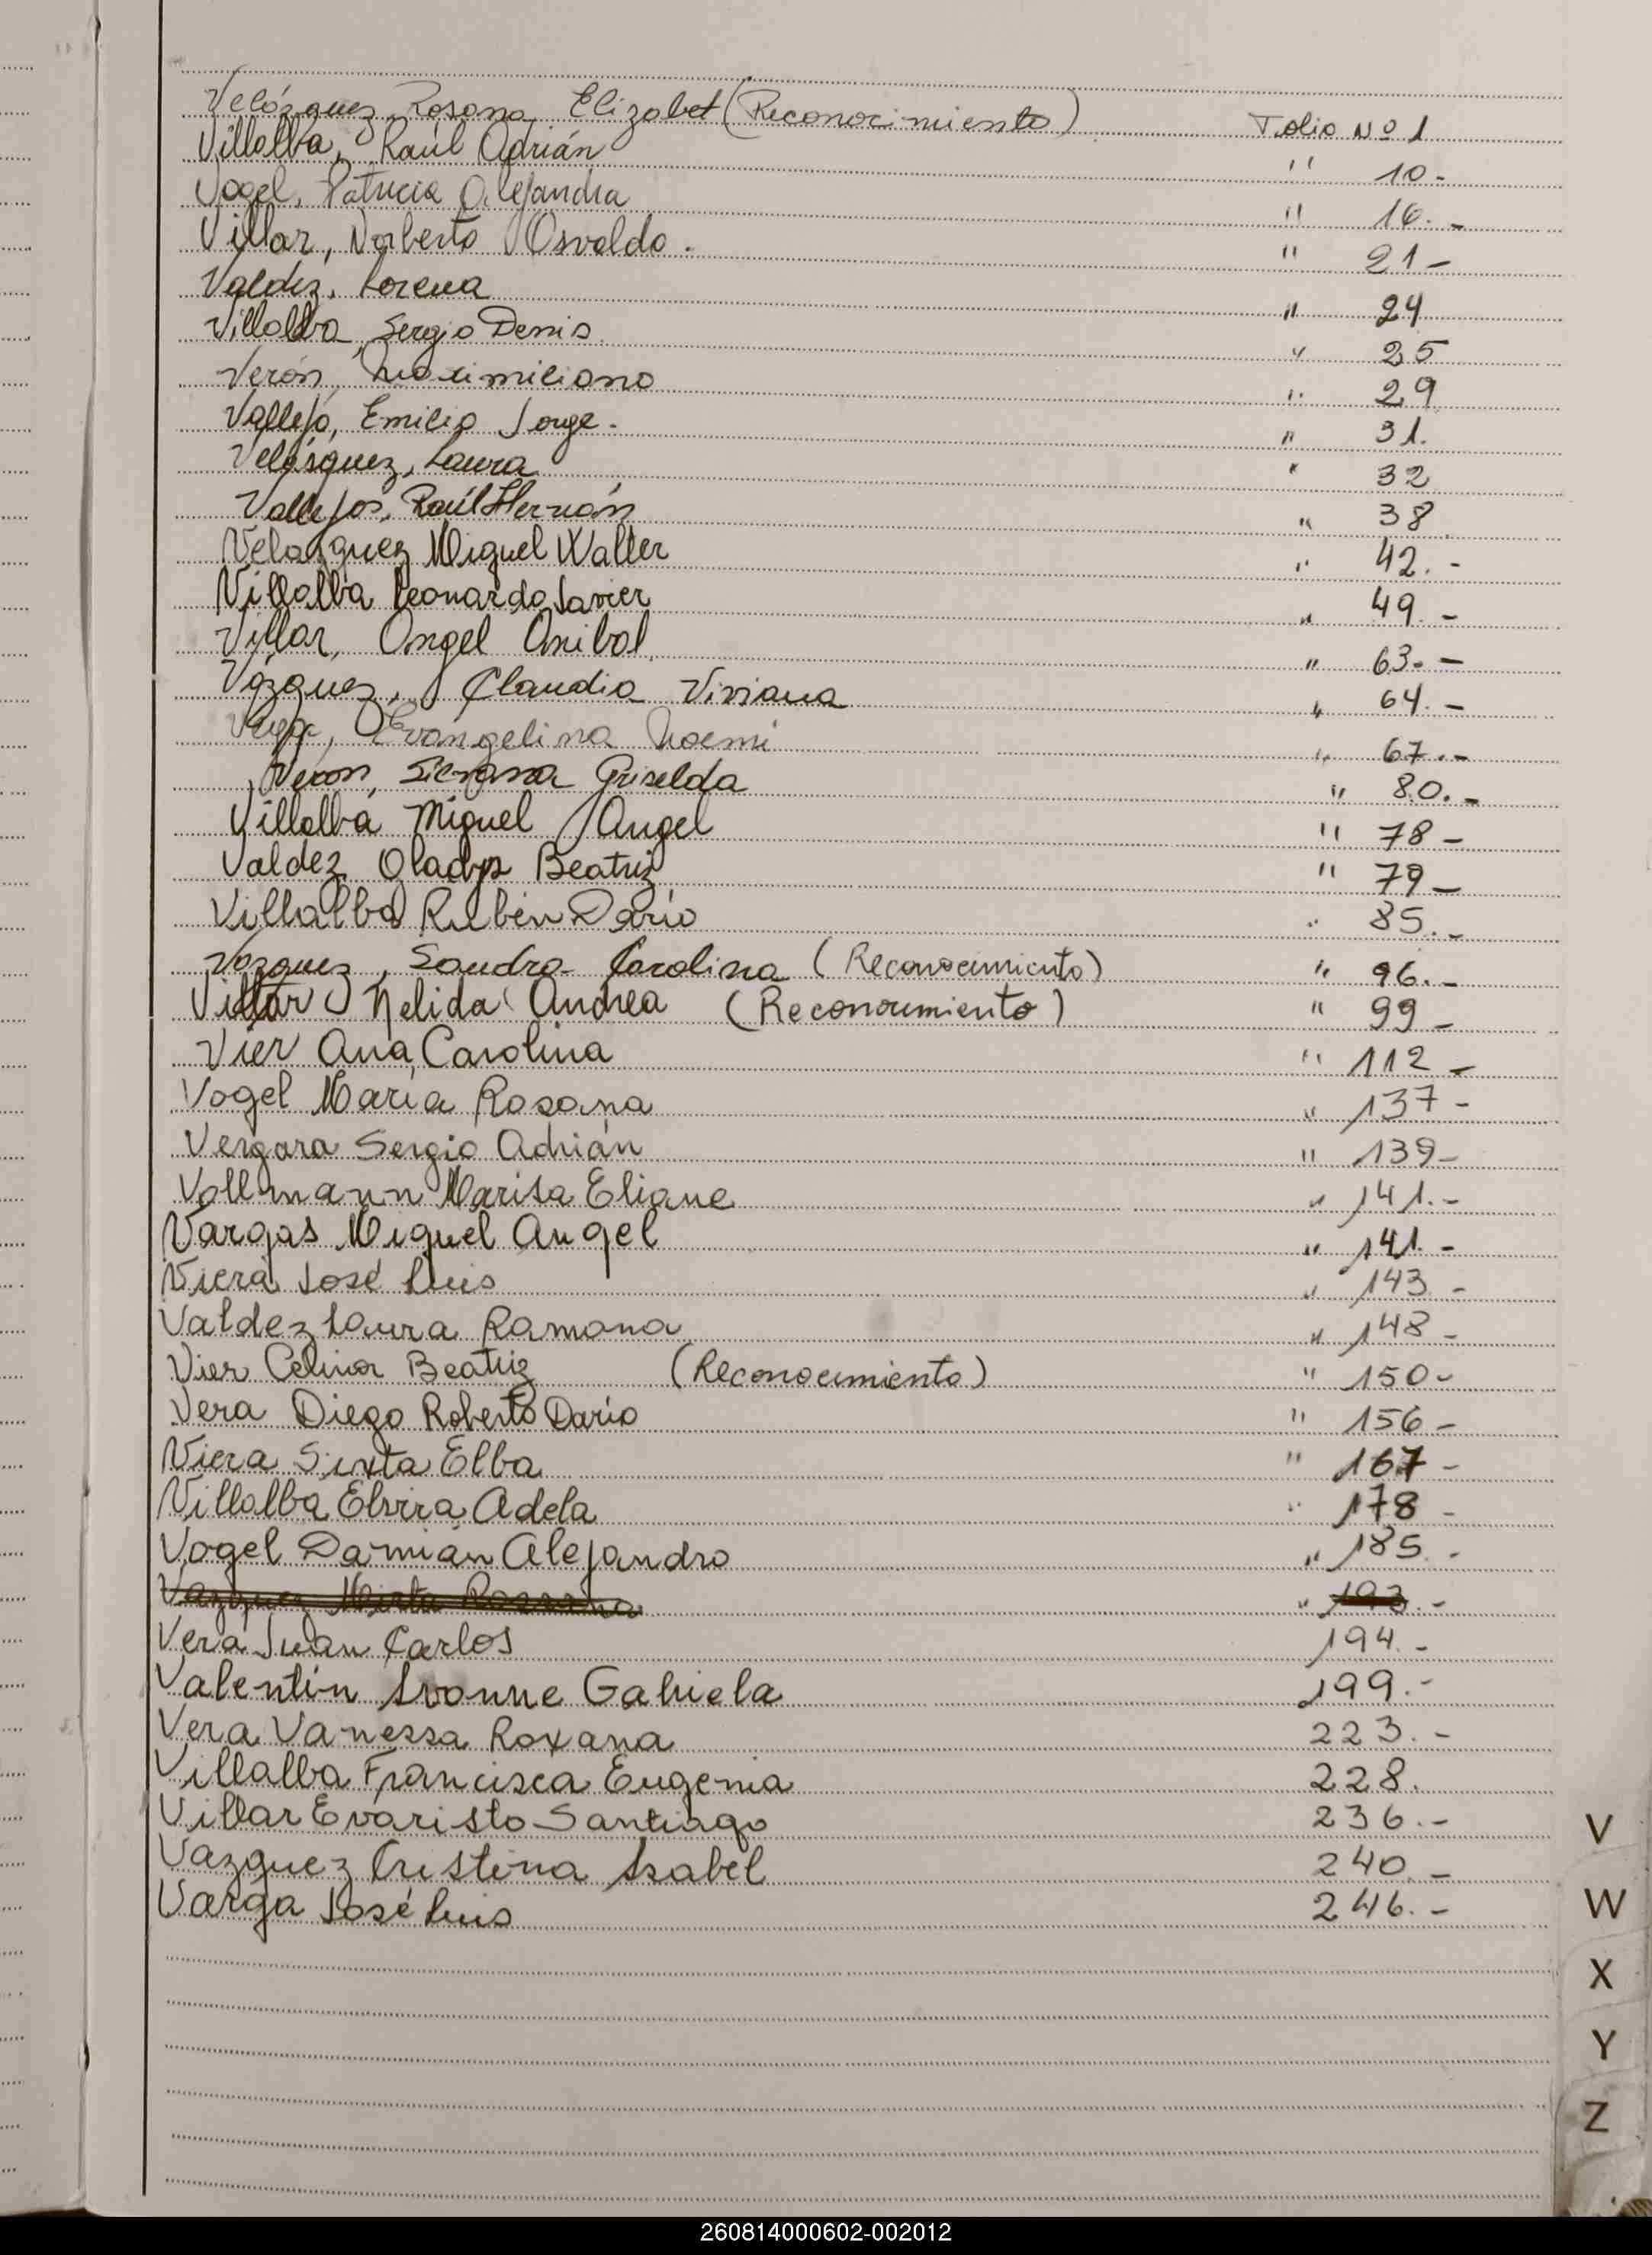 Velázquez, Rosana Elizabet (Reconocimiento) Folio Nº 1
Villalba, Raúl Adrián " 10.-
Vogel, Patricia Alejandra " 16.-
Villar, Norberto Osvaldo. " 21-
Valdéz, Lorena " 24
Villalba, Sergio Denis " 25
Verón, Maximiliano " 29
Vallejo, Emilio Jorge. " 31.
Velásquez, Laura " 32
Vallejos, Raúl Hernán " 38
Velazquez Miguel Walter " 42.-
Villalba Leonardo Javier " 49.-
Villar, Angel Anibal " 63.-
Vázquez, Claudia Viviana " 64.-
Evangelina Noemi " 67.-
Veron, Silvana Griselda " 80.-
Villalba Miguel Angel " 78-
Valdez Gladys Beatriz " 79-
Villalba Rubén Darío " 85.-
Vazquez, Sandra Carolina (Reconocimiento) " 96.-
Villar Nelida Andrea (Reconocimiento) " 99-
Vier Ana Carolina " 112-
Vogel María Rosana " 137-
Vergara Sergio Adrián " 139-
Vollmann Marisa Eliane " 141.-
Vargas Miguel Angel " 141.-
Viera José Luis " 143.-
Valdez Laura Ramona " 148-
Vier Celina Beatriz (Reconocimiento) " 150-
Vera Diego Roberto Darío " 156-
Viera Sixta Elba " 167-
Villalba Elvira Adela " 178-
Vogel Damián Alejandro " 185.-
Vazquez Mirta Rossana " 193.-
Vera Juan Carlos 194.-
Valentín Ivonne Gabriela 199.-
Vera Vanessa Roxana 223.-
Villalba Francisca Eugenia 228.
Villar Evaristo Santiago 236.-
Vazquez Cristina Isabel 240.-
Varga José Luis 246.-
V
W
X
Y
Z
260814000602-002012